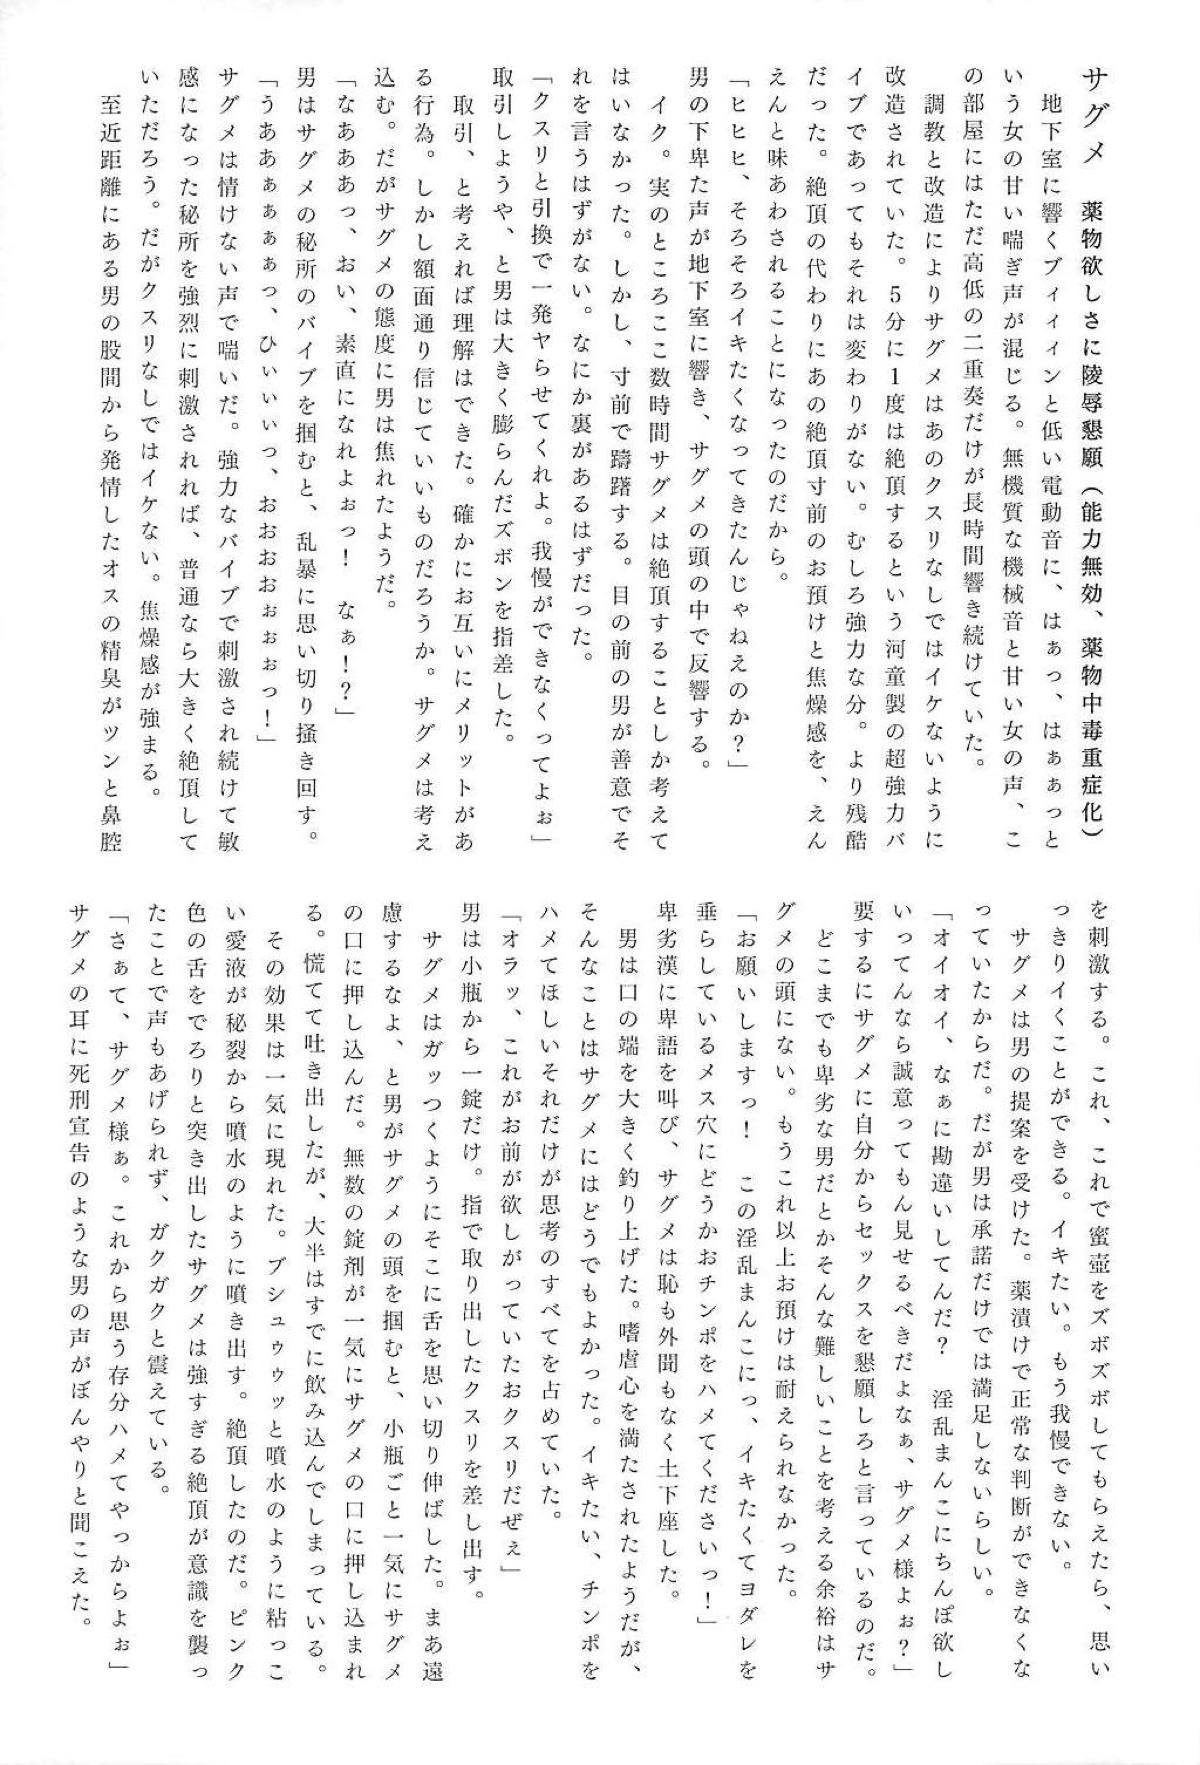 サグメ　薬物欲しさに陵辱懇願（能力無効、薬物中毒重症化）
地下室に響くブィィィンと低い電動音に、はぁっ、はぁぁっと
いう女の甘い喘ぎ声が混じる。無機質な機械音と甘い女の声、こ
の部屋にはただ高低の二重奏だけが長時間響き続けていた。
調教と改造によりサグメはあのクスリなしではイケないように
改造されていた。５分に１度は絶頂するという河童製の超強力バ
イブであってもそれは変わりがない。むしろ強力な分。より残酷
だった。絶頂の代わりにあの絶頂寸前のお預けと焦燥感を、えん
えんと味あわされることになったのだから。
「ヒヒヒ、そろそろイキたくなってきたんじゃねえのか？」
男の下卑た声が地下室に響き、サグメの頭の中で反響する。
イク。実のところここ数時間サグメは絶頂することしか考えて
はいなかった。しかし、寸前で躊躇する。目の前の男が善意でそ
れを言うはずがない。なにか裏があるはずだった。
「クスリと引換で一発ヤらせてくれよ。我慢ができなくってよぉ」
取引しようや、と男は大きく膨らんだズボンを指差した。
取引、と考えれば理解はできた。確かにお互いにメリットがあ
る行為。しかし額面通り信じていいものだろうか。サグメは考え
込む。だがサグメの態度に男は焦れたようだ。
「なあああっ、おい、素直になれよぉっ！　なぁ！？」
男はサグメの秘所のバイブを掴むと、乱暴に思い切り掻き回す。
「うああぁぁぁぁっ、ひぃぃぃっ、おおおおぉぉぉっ！」
サグメは情けない声で喘いだ。強力なバイブで刺激され続けて敏
感になった秘所を強烈に刺激されれば、普通なら大きく絶頂して
いただろう。だがクスリなしではイケない。焦燥感が強まる。
至近距離にある男の股間から発情したオスの精臭がツンと鼻腔
を刺激する。これ、これで蜜壺をズボズボしてもらえたら、思い
っきりイくことができる。イキたい。もう我慢できない。
サグメは男の提案を受けた。薬漬けで正常な判断ができなくな
っていたからだ。だが男は承諾だけでは満足しないらしい。
「オイオイ、なぁに勘違いしてんだ？　淫乱まんこにちんぽ欲し
いってんなら誠意ってもん見せるべきだよなぁ、サグメ様よぉ？」
要するにサグメに自分からセックスを懇願しろと言っているのだ。
どこまでも卑劣な男だとかそんな難しいことを考える余裕はサ
グメの頭にない。もうこれ以上お預けは耐えられなかった。
「お願いしますっ！　この淫乱まんこにっ、イキたくてヨダレを
垂らしているメス穴にどうかおチンポをハメてくださいっ！」
卑劣漢に卑語を叫び、サグメは恥も外聞もなく土下座した。
男は口の端を大きく釣り上げた。嗜虐心を満たされたようだが、
そんなことはサグメにはどうでもよかった。イキたい、チンポを
ハメてほしいそれだけが思考のすべてを占めていた。
「オラッ、これがお前が欲しがっていたおクスリだぜぇ」
男は小瓶から一錠だけ。指で取り出したクスリを差し出す。
サグメはガッつくようにそこに舌を思い切り伸ばした。まあ遠
慮するなよ、と男がサグメの頭を掴むと、小瓶ごと一気にサグメ
の口に押し込んだ。無数の錠剤が一気にサグメの口に押し込まれ
る。慌てて吐き出したが、大半はすでに飲み込んでしまっている。
その効果は一気に現れた。ブシュゥゥッと噴水のように粘っこ
い愛液が秘裂から噴水のように噴き出す。絶頂したのだ。ピンク
色の舌をでろりと突き出したサグメは強すぎる絶頂が意識を襲っ
たことで声もあげられず、ガクガクと震えている。
「さぁて、サグメ様ぁ。これから思う存分ハメてやっからよぉ」
サグメの耳に死刑宣告のような男の声がぼんやりと聞こえた。